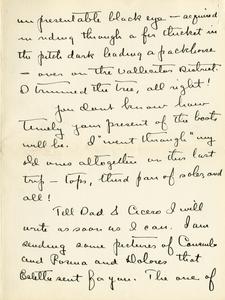 unpresentable black eye – acquired
in riding through a fir thicket in
the pitch dark leading a packhorse
– over on the Vallecitos District.
I trimmed the tree, all right!
You don't know how
timely your present of the boots
will be. I "went through" my
old ones altogether on this last
trip – tops, third pair of soles, and
all!
Tell Dad & Cicero I will
write as soon as I can. I am
sending some pictures of Consuelo
and Posma and Dolores that
Estella sent for you. The one of